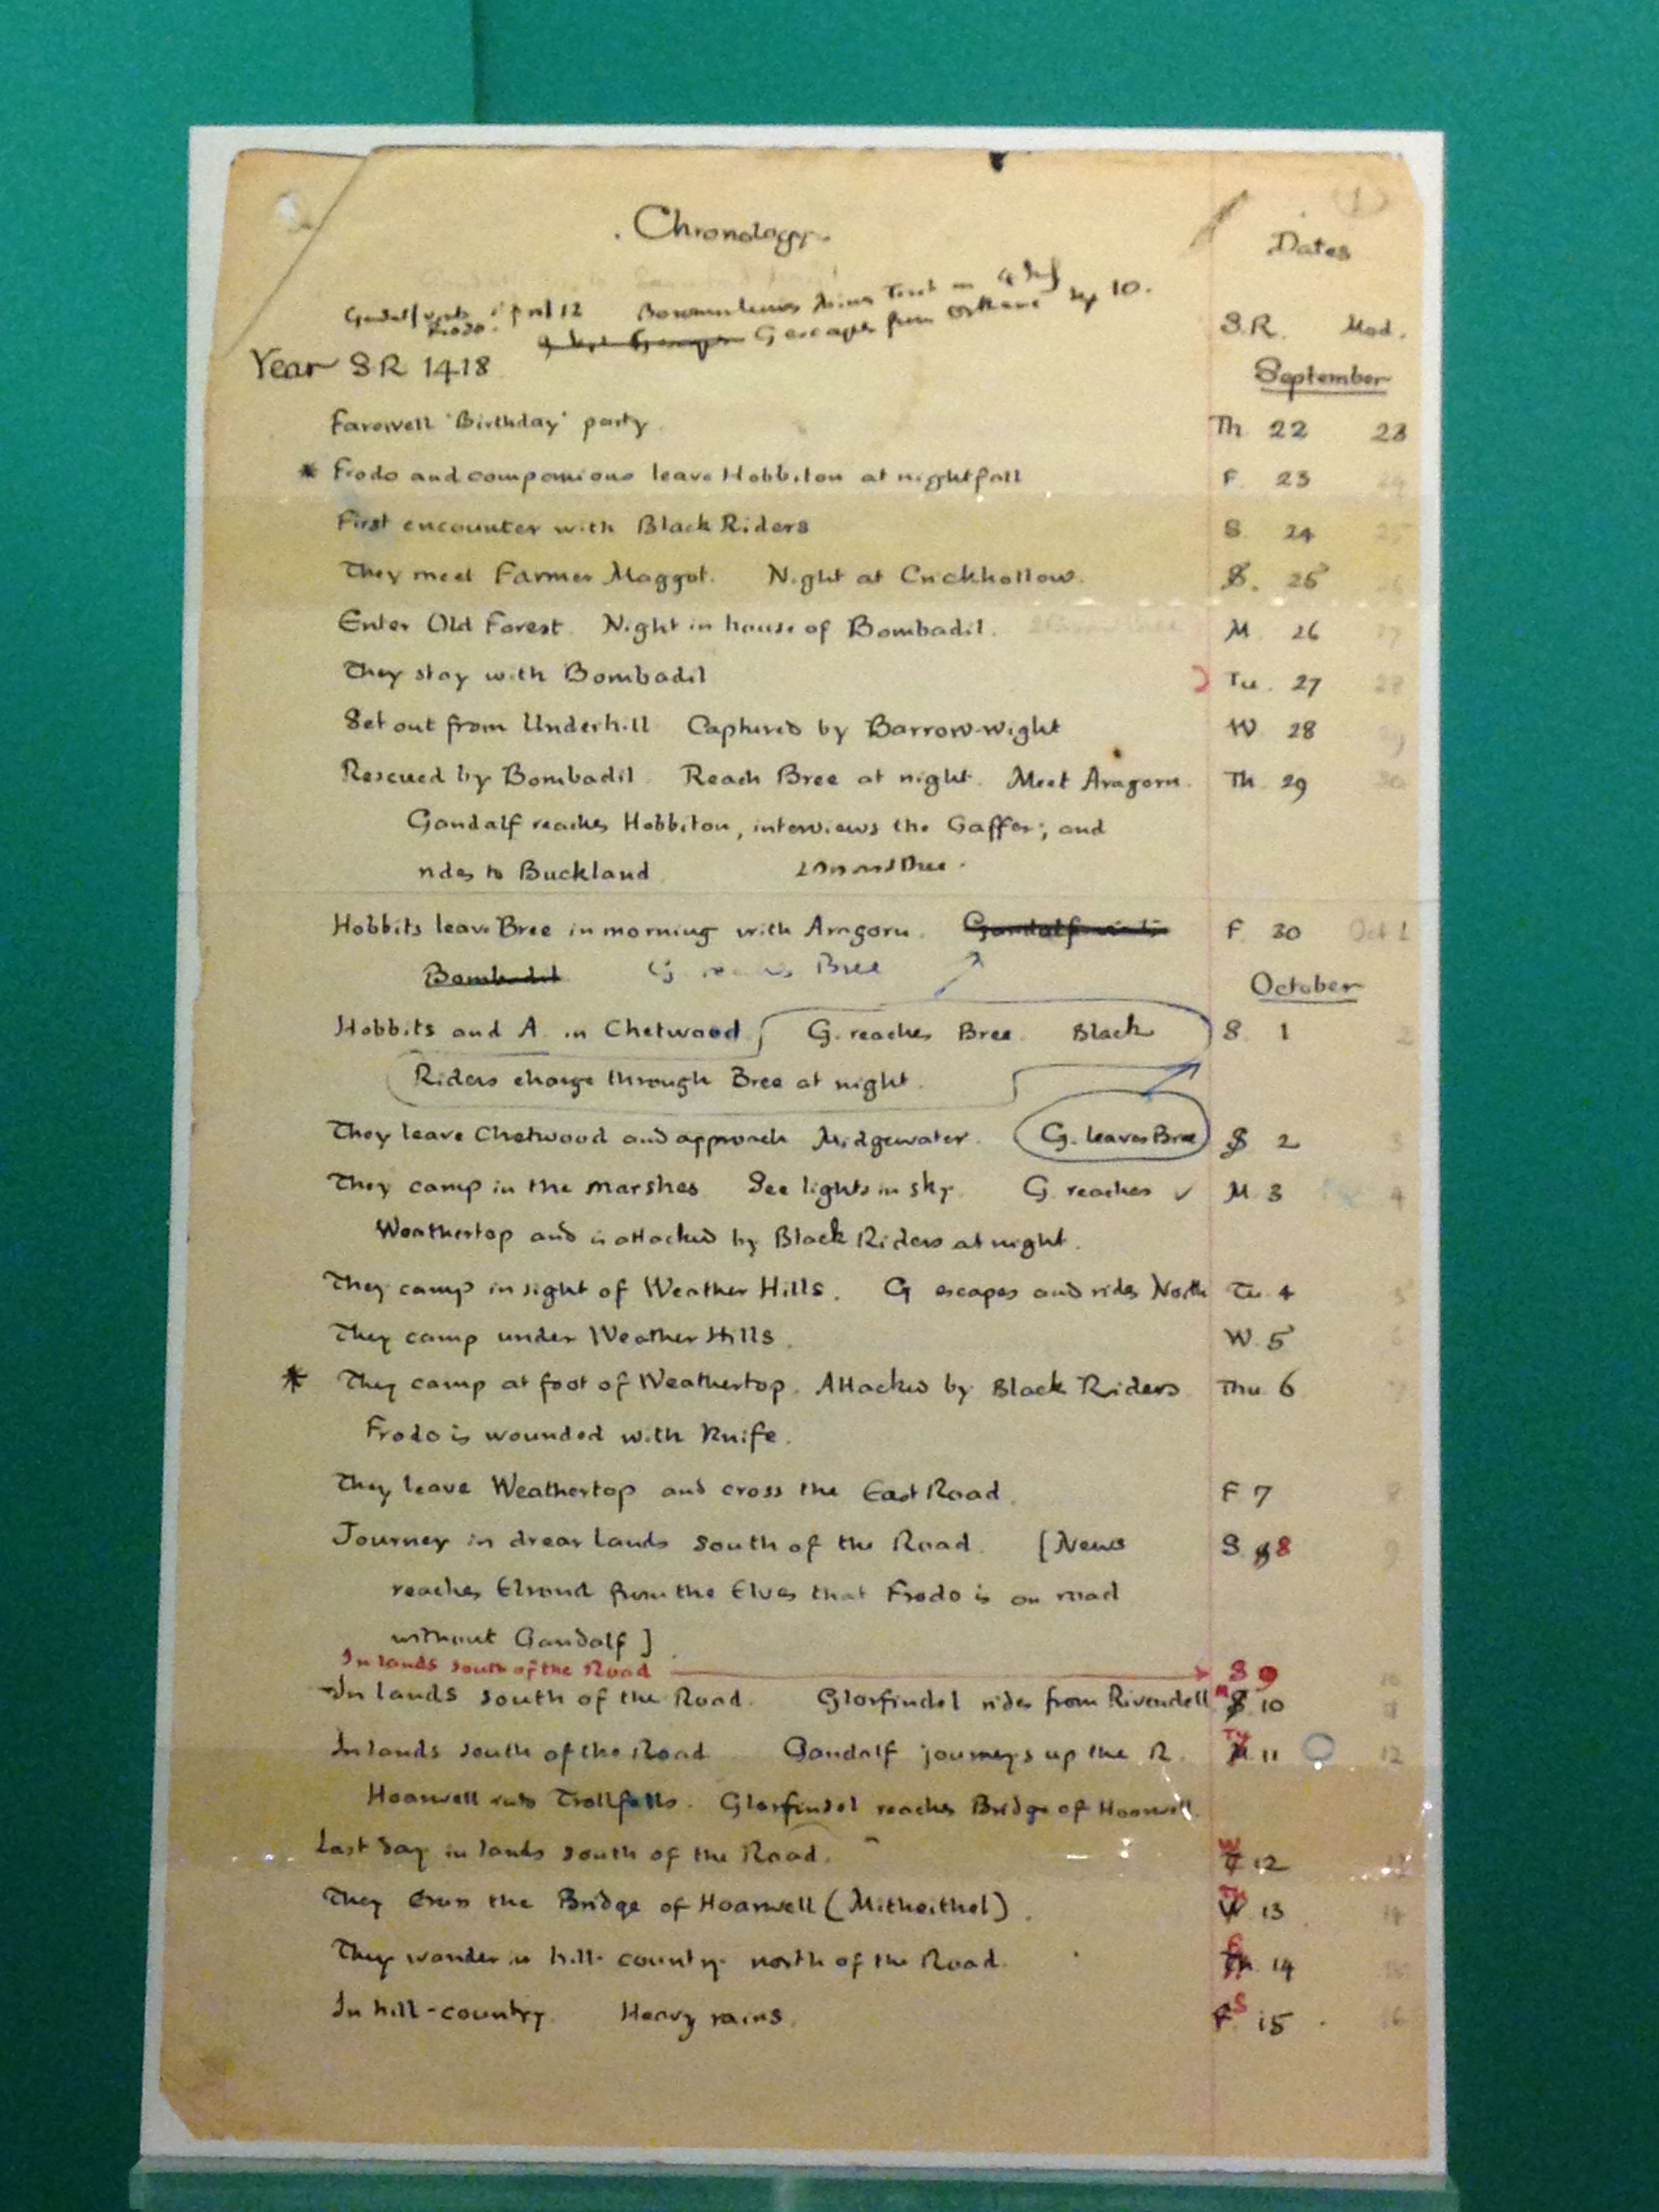 (1)
Chronology
Dates
Gandalf visits Frodo. April 12
4 July
G escapes from Orthanc Sep 10.
S.R. Mod.
Year SR 1418
September
Farewell 'Birthday' party. Th 22 23
* Frodo and companions leave Hobbiton at nightfall F. 23 24
First encounter with Black Riders S. 24 25
They meet Farmer Maggot. Night at Crickhollow. S. 25
Enter Old Forest. Night in house of Bombadil. M. 26 27
They stay with Bombadil Tu. 27 28
Set out from Underhill Captured by Barrow-wight W 28 29
Rescued by Bombadil. Reach Bree at night. Meet Aragorn. Th. 29 30
Gandalf reaches Hobbiton, interviews the Gaffer; and
rides to Buckland
Hobbits leave Bree in morning with Aragorn. Gandalf visits F. 30 Oct 1
Bombadil G. reaches Bree
October
Hobbits and A. in Chetwood G. reaches Bree. Black S. 1 2
Riders charge through Bree at night.
They leave Chetwood and approach Midgewater. G. leaves Bree S 2 3
They camp in the marshes See lights in sky. G. reaches ✓ M. 3 4
Weathertop and is attacked by Black Riders at night.
They camp in sight of Weather Hills. G escapes and rides North Tu. 4 5
They camp under Weather Hills. W. 5
* They camp at foot of Weathertop. Attacked by Black Riders Thu 6 7
Frodo is wounded with Knife.
They leave Weathertop and cross the East Road. F 7 8
Journey in drear lands south of the Road. [News S. 8 9
reaches Elrond from the Elves that Frodo is on road
without Gandalf]
In lands south of the Road S 9 10
In lands south of the Road. Glorfindel rides from Rivendell M S 10
In lands south of the Road Gandalf journeys up the R. Tu M. 11 12
Hoarwell into Trollfells. Glorfindel reaches Bridge of Hoarwell.
Last day in lands south of the Road. W T 12 13
They cross the Bridge of Hoarwell (Mitheithel). Th W 13 14
They wander in hill-country north of the Road. F Th. 14
In hill-country. Heavy rains. S F. 15 16